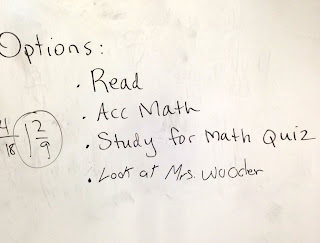 Options:
· Read
· Acc Math
4/18 1 2/9
· Study for Math Quiz
· Look at Mrs. Wooder